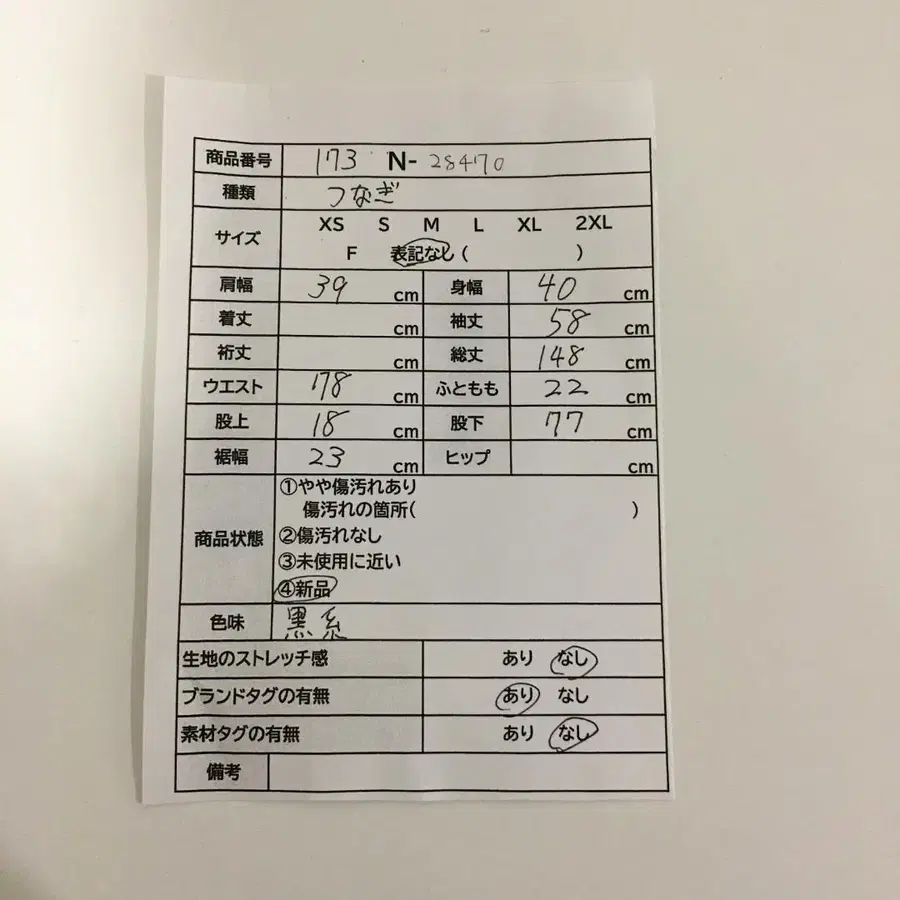 商品番号 173 N-28470
種類 つなぎ
サイズ XS S M L XL 2XL
F 表記なし( )
肩幅 39 cm 身幅 40 cm
着丈 cm 袖丈 58 cm
裄丈 cm 総丈 148 cm
ウエスト 178 cm ふともも 22 cm
股上 18 cm 股下 77 cm
裾幅 23 cm ヒップ cm
商品状態 ①やや傷汚れあり
傷汚れの箇所( )
②傷汚れなし
③未使用に近い
④新品
色味 黒系
生地のストレッチ感 あり なし
ブランドタグの有無 あり なし
素材タグの有無 あり なし
備考